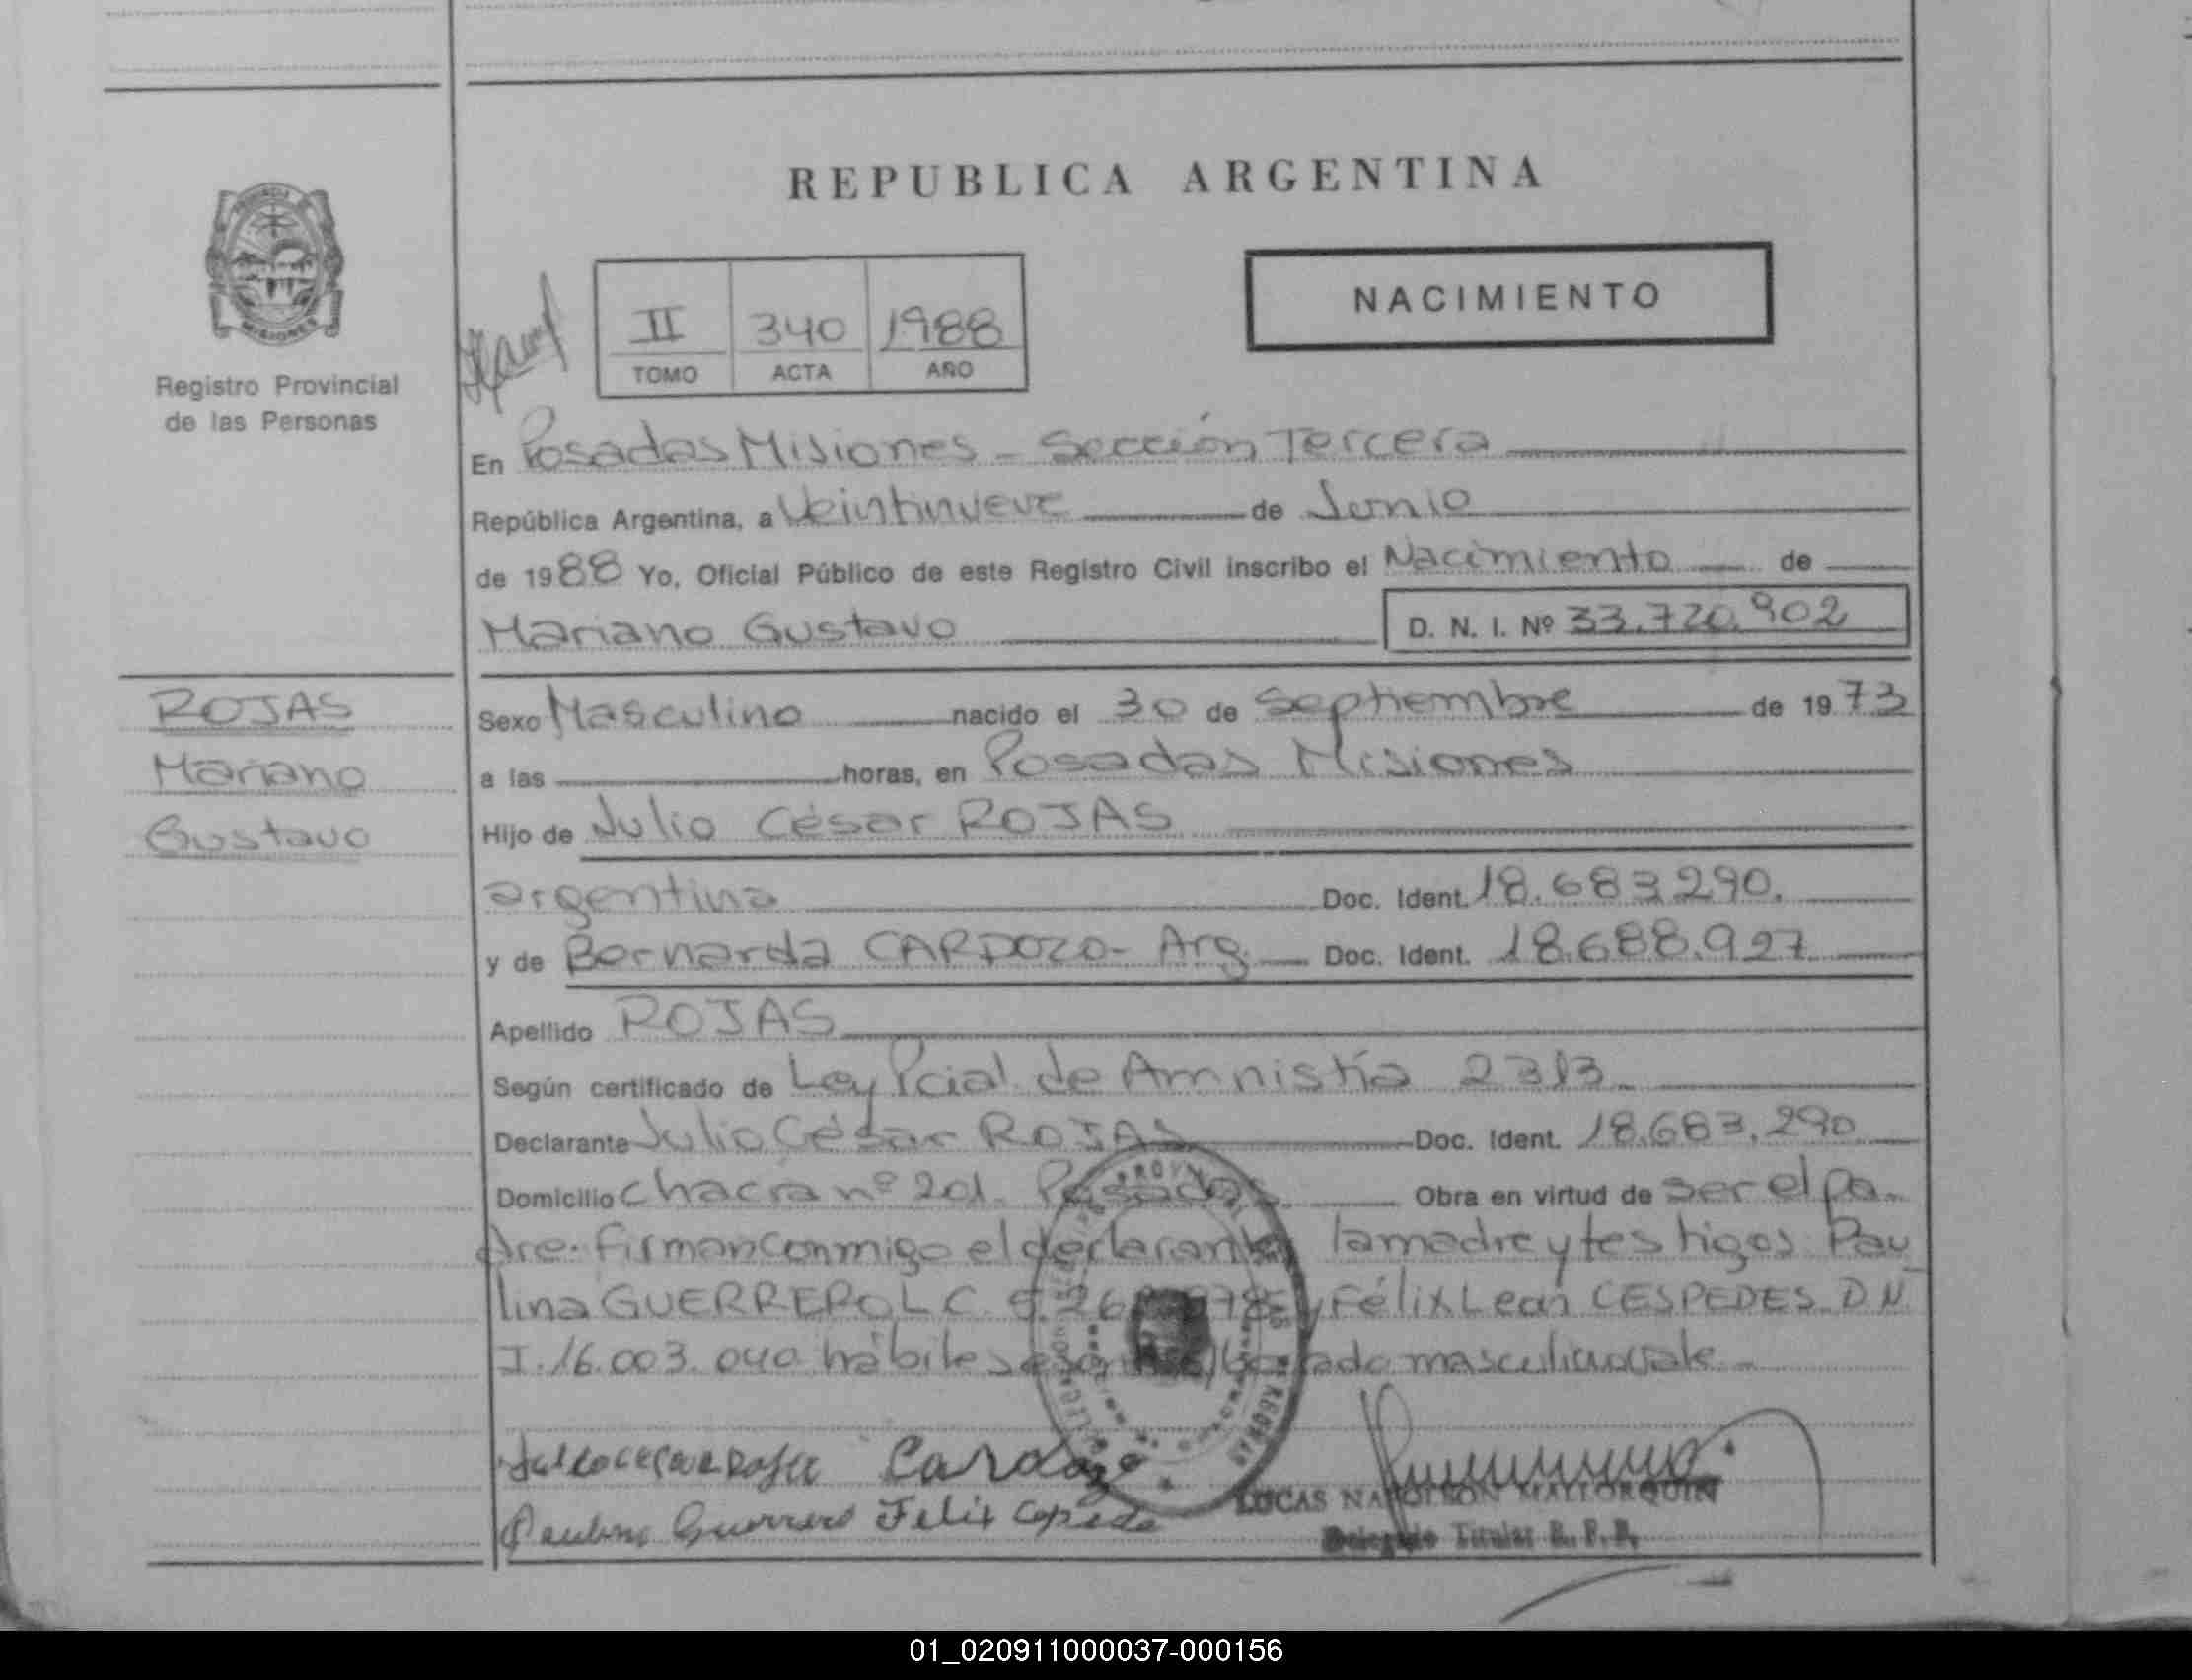 REPUBLICA ARGENTINA
NACIMIENTO
II 340 1988
TOMO ACTA AÑO
PROVINCIA
MISIONES
Registro Provincial
de las Personas
En Posadas Misiones - Sección Tercera
República Argentina, a Veintinueve de Junio
de 1988 Yo, Oficial Público de este Registro Civil inscribo el Nacimiento de
Mariano Gustavo D. N. I. Nº 33.720.902
ROJAS
Mariano
Gustavo
Sexo Masculino nacido el 30 de Septiembre de 1973
a las horas, en Posadas Misiones
Hijo de Julio César ROJAS
argentina Doc. Ident. 18.683.290.
y de Bernarda CARDOZO - Arg. Doc. Ident. 18.688.927
Apellido ROJAS
Según certificado de Ley Pcial de Amnistía 2313.
Declarante Julio César ROJAS Doc. Ident. 18.683.290
Domicilio chacra nº 201. Posadas Obra en virtud de ser el pa-
dre. firman conmigo el declarante, la madre y testigos Pau
lina GUERRERO L.C. y Félix Lean CESPEDES D.N.
I. 16.003.040 hábiles masculino vale
Julio Cesar Rojas Cardozo
Paulina Guerrero Felix Cespede
LUCAS NAPOLEON MALLORQUIN
Delegado Titular R. P. P.
01_020911000037-000156